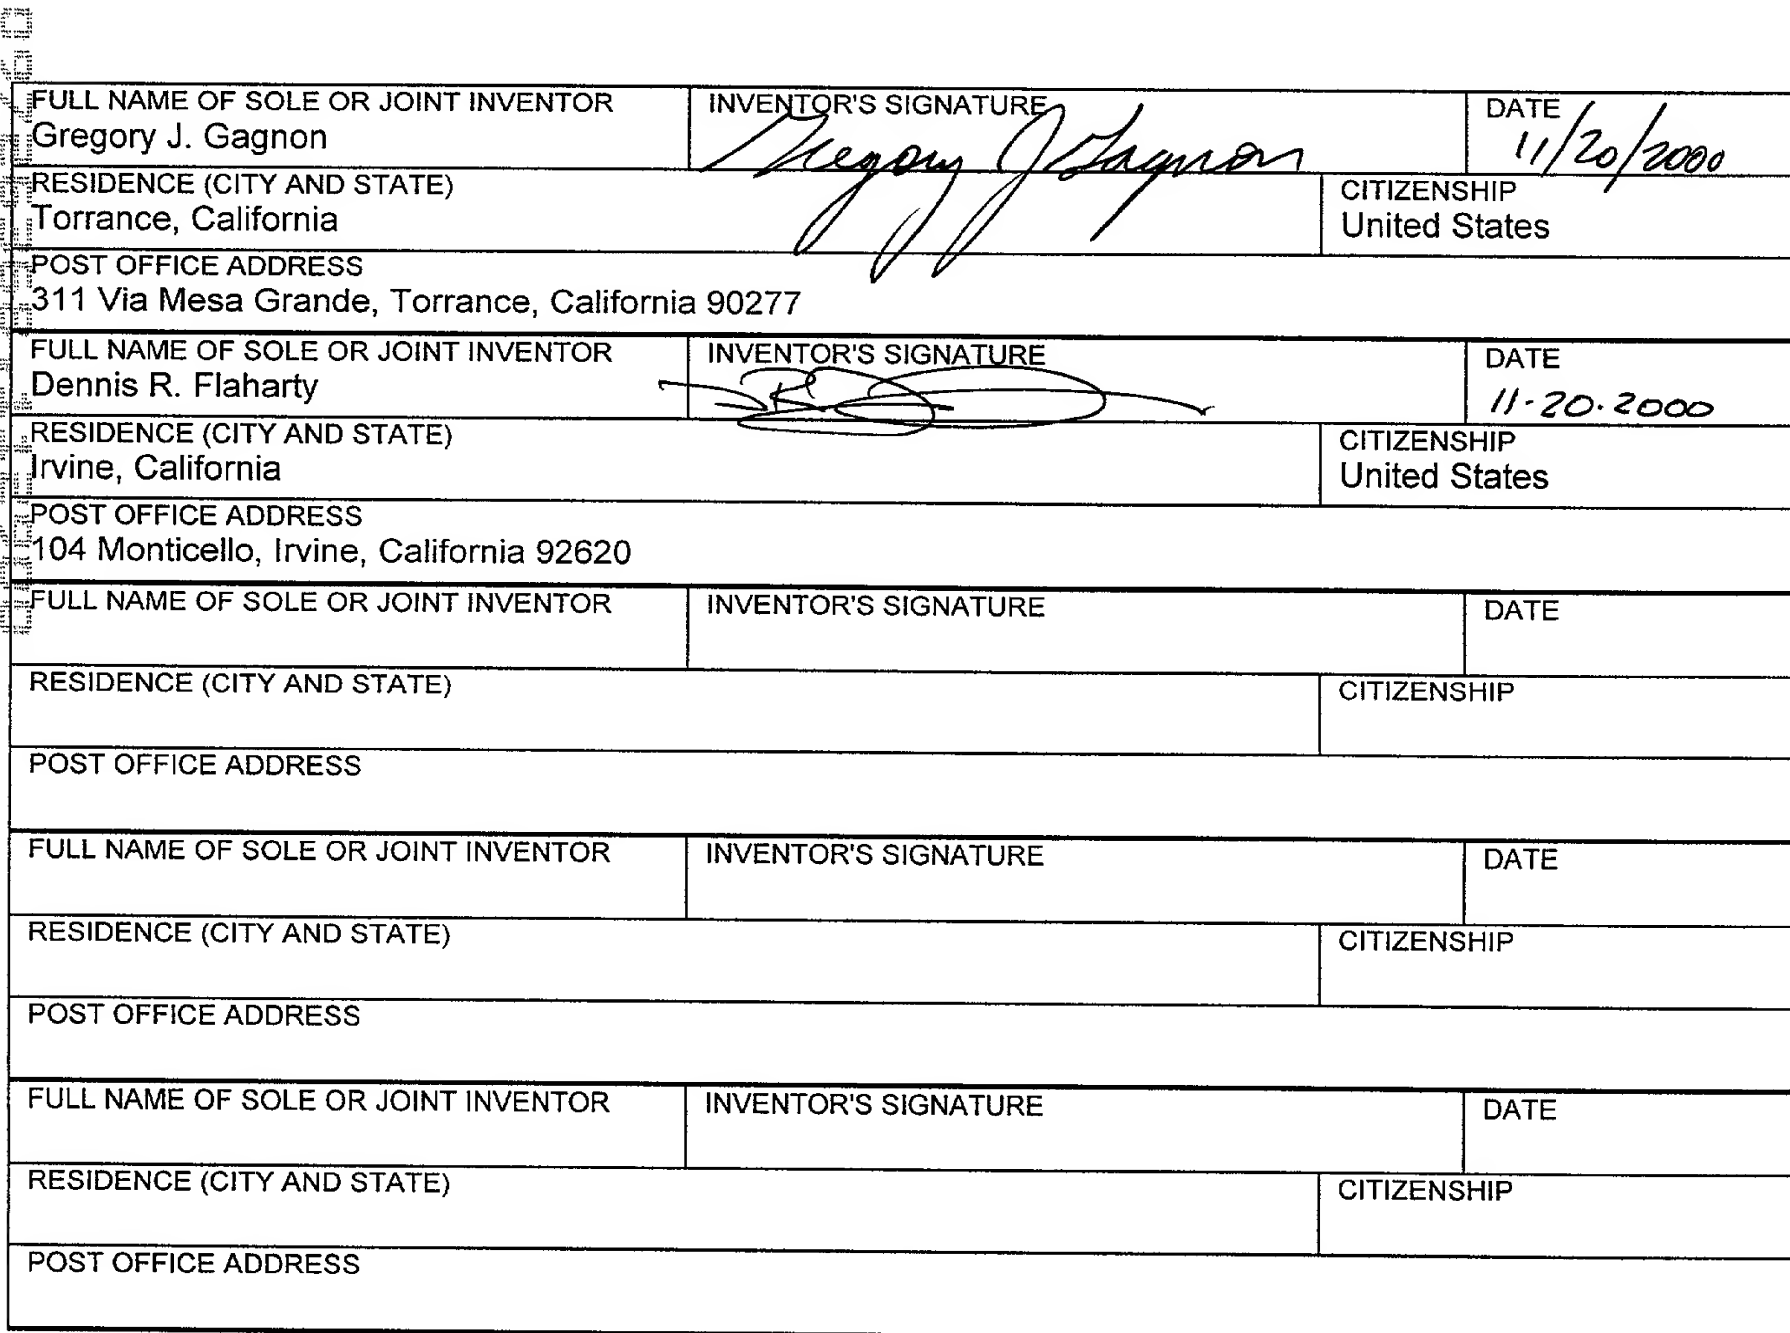 FULL NAME OF SOLE OR JOINT INVENTOR INVENTOR'S SIGNATURE DATE
Gregory J. Gagnon Gregory J Gagnon 11/20/2000
RESIDENCE (CITY AND STATE) CITIZENSHIP
Torrance, California United States
POST OFFICE ADDRESS
311 Via Mesa Grande, Torrance, California 90277
FULL NAME OF SOLE OR JOINT INVENTOR INVENTOR'S SIGNATURE DATE
Dennis R. Flaharty 11-20.2000
RESIDENCE (CITY AND STATE) CITIZENSHIP
Irvine, California United States
POST OFFICE ADDRESS
104 Monticello, Irvine, California 92620
FULL NAME OF SOLE OR JOINT INVENTOR INVENTOR'S SIGNATURE DATE
RESIDENCE (CITY AND STATE) CITIZENSHIP
POST OFFICE ADDRESS
FULL NAME OF SOLE OR JOINT INVENTOR INVENTOR'S SIGNATURE DATE
RESIDENCE (CITY AND STATE) CITIZENSHIP
POST OFFICE ADDRESS
FULL NAME OF SOLE OR JOINT INVENTOR INVENTOR'S SIGNATURE DATE
RESIDENCE (CITY AND STATE) CITIZENSHIP
POST OFFICE ADDRESS